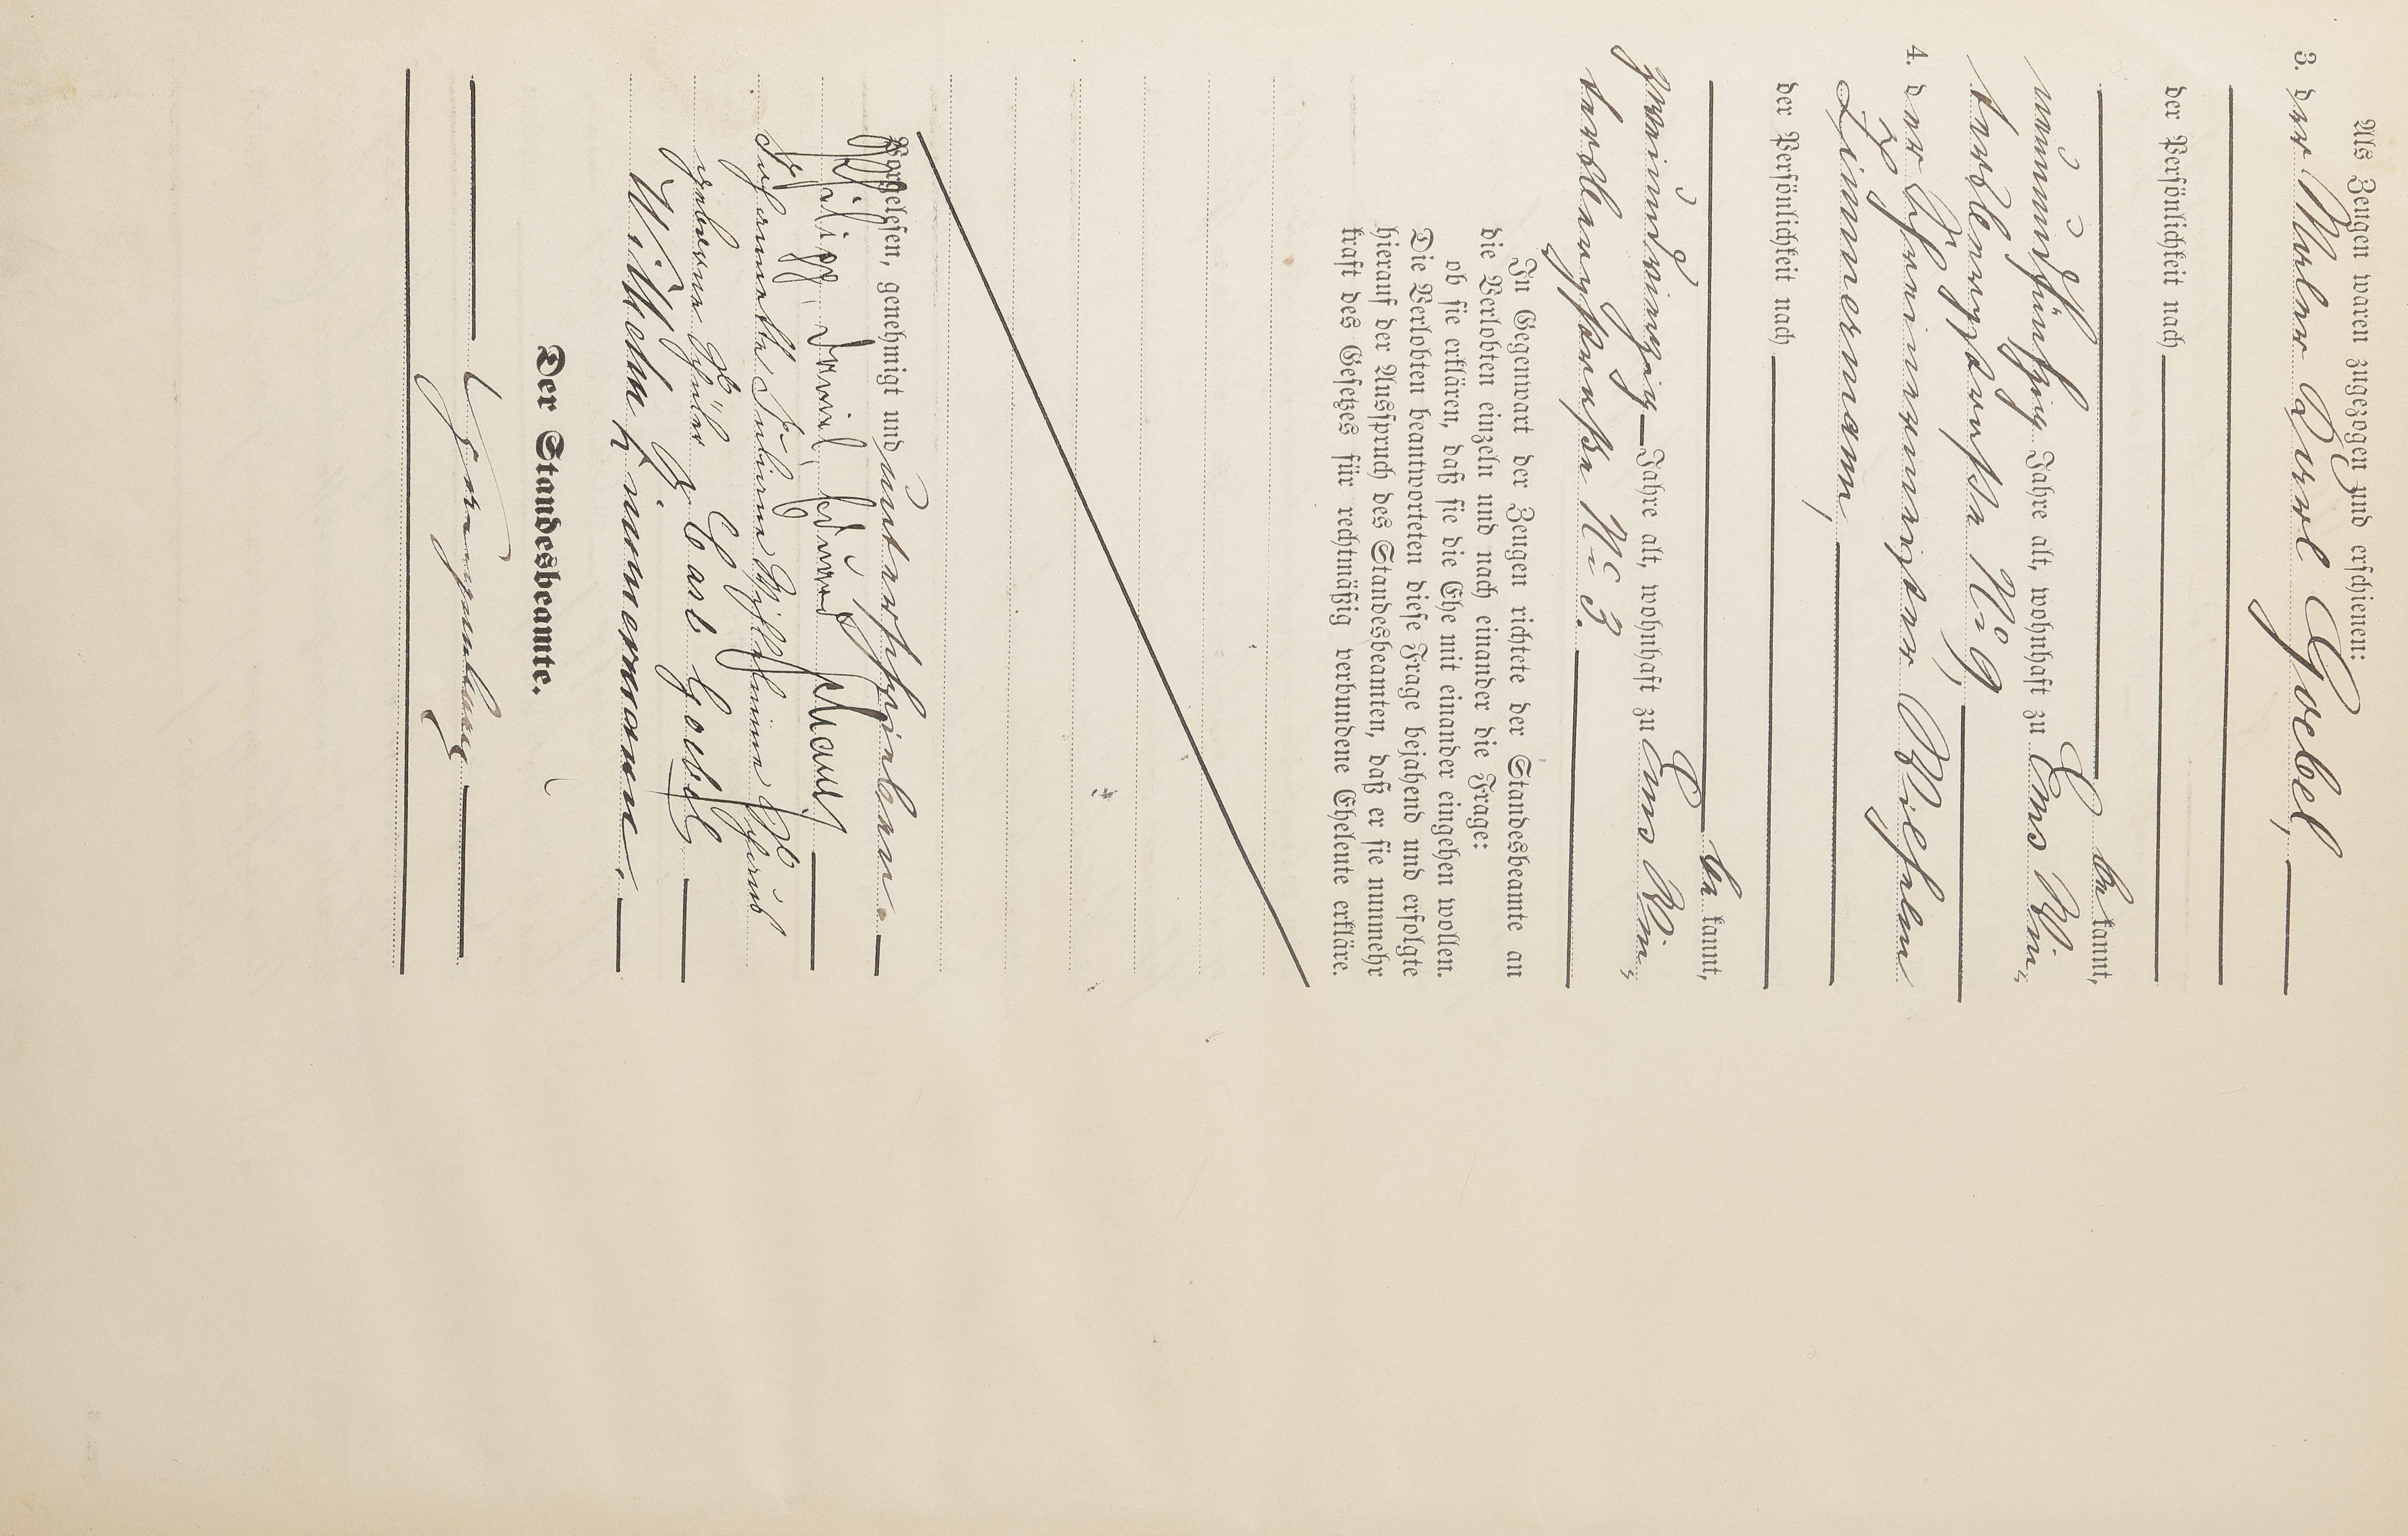 Als Zeugen waren zugezogen und erschienen:
3. der Maler Carl Goebel,
der Persönlichkeit nach
be kannt,
neunundfünfzig Jahre alt, wohnhaft zu Ems Win-
tersbergstraße No 9,
4. der Schreinermeister Wilhelm
Zimmermann,
der Persönlichkeit nach
be kannt,
zweiunddreißig Jahre alt, wohnhaft zu Ems Win-
tersbergstraße No 3.
In Gegenwart der Zeugen richtete der Standesbeamte an
die Verlobten einzeln und nach einander die Frage:
ob sie erklären, daß sie die Ehe mit einander eingehen wollen.
Die Verlobten beantworteten diese Frage bejahend und erfolgte
hierauf der Ausspruch des Standesbeamten, daß er sie nunmehr
kraft des Gesetzes für rechtmäßig verbundene Eheleute erkläre.
Vorgelesen, genehmigt und unterschrieben.
Philipp Daniel Eduard
Wilhelmine
geborene Carl Goebel
Wilhelm Zimmermann.
Der Standesbeamte.